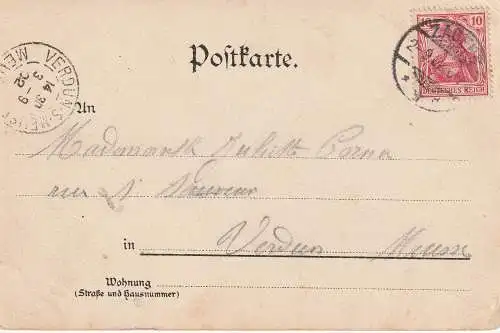 Postkarte.
10
DEUTSCHES REICH
VERDUN-S-MEUSE
14 30
3 - 9
02
An
Mademoiselle Juliette
rue St Sauveur
in Verdun Meuse
Wohnung
(Straße und Hausnummer)